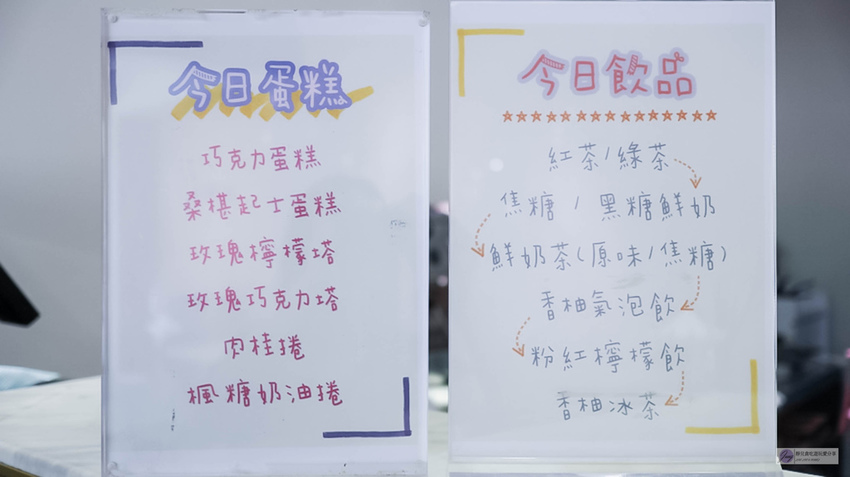 今日蛋糕
巧克力蛋糕
桑椹起士蛋糕
玫瑰檸檬塔
玫瑰巧克力塔
肉桂捲
楓糖奶油捲
今日飲品
紅茶/綠茶
焦糖/黑糖鮮奶
鮮奶茶(原味/焦糖)
香柚氣泡飲
粉紅檸檬飲
香柚冰茶